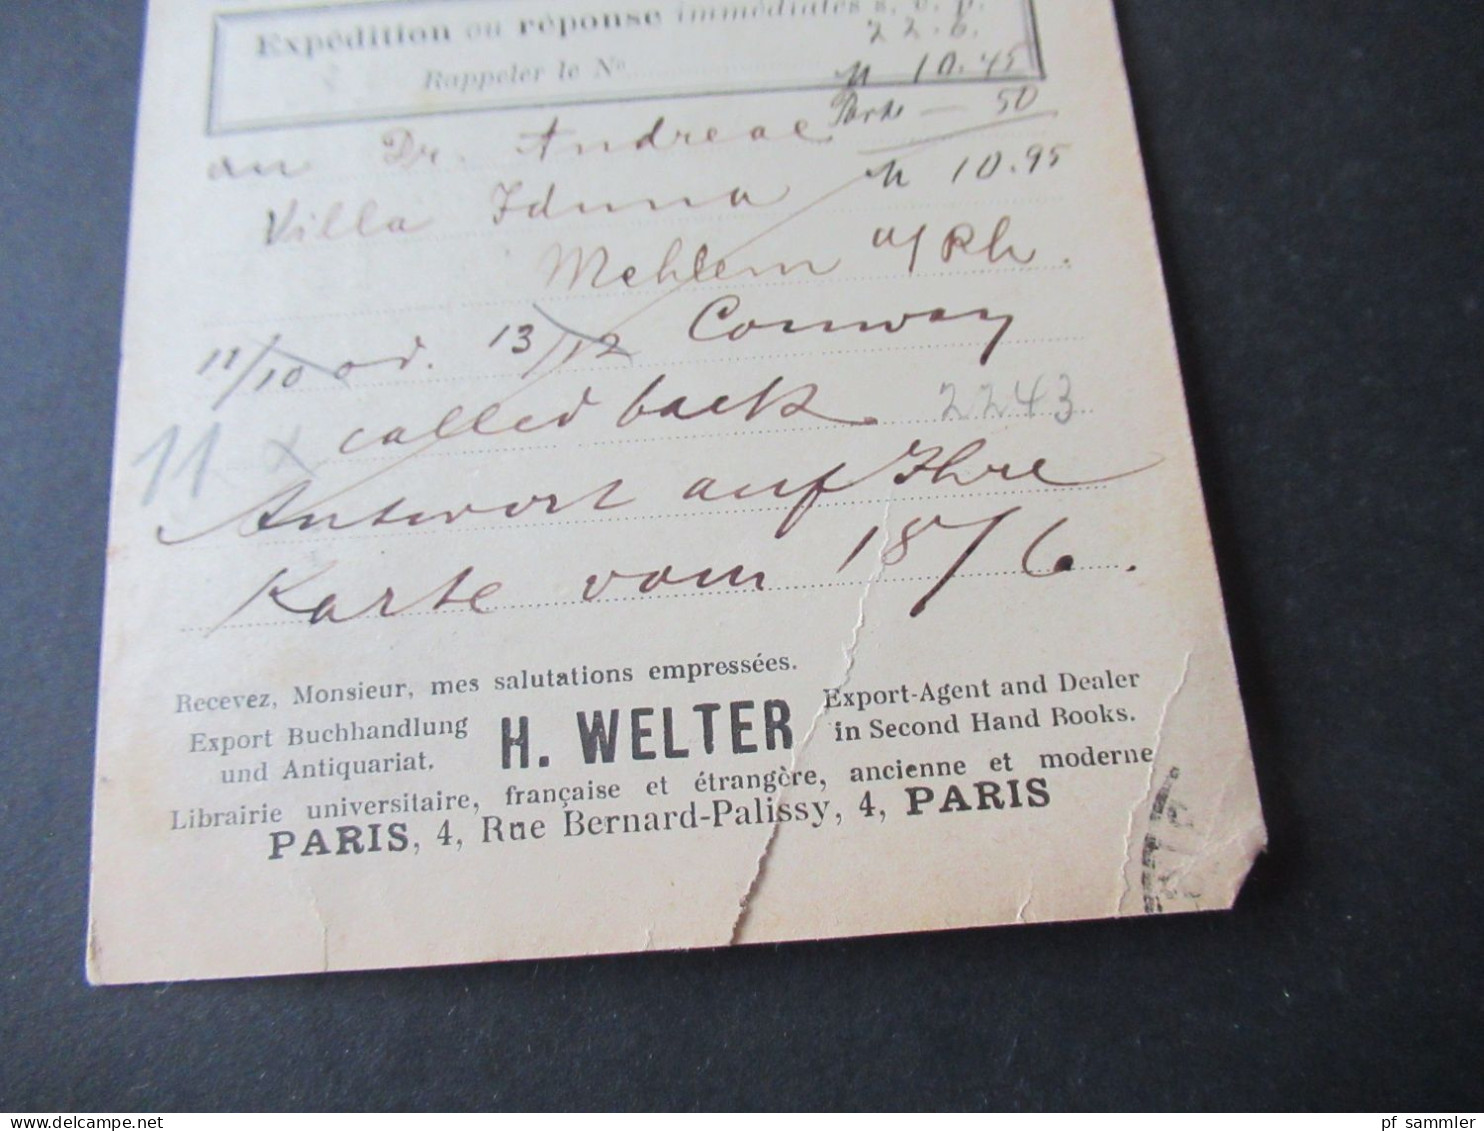 Expédition ou réponse immédiates s. v. p.
Rappeler le No
22.6.
M 10.45
Porto — 50
M 10.95
an Dr. Andreae
Villa Iduna
Mehlem a/Rh.
11/10 od. 13/12 Conway
11 x called back. 2243
Antwort auf Ihre
Karte vom 18/6.
Recevez, Monsieur, mes salutations empressées.
Export Buchhandlung
und Antiquariat.
H. WELTER
Export-Agent and Dealer
in Second Hand Books.
Librairie universitaire, française et étrangère, ancienne et moderne
PARIS, 4, Rue Bernard-Palissy, 4, PARIS
pf_sammler_